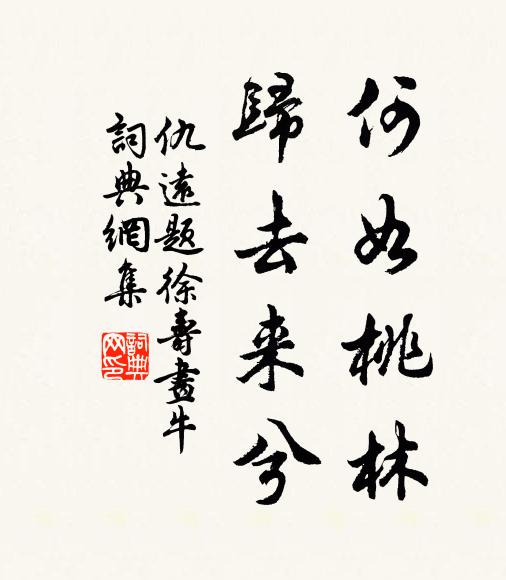 何如桃林
歸去来兮
仇遠題徐壽畫牛
詞典網集
詞典網印